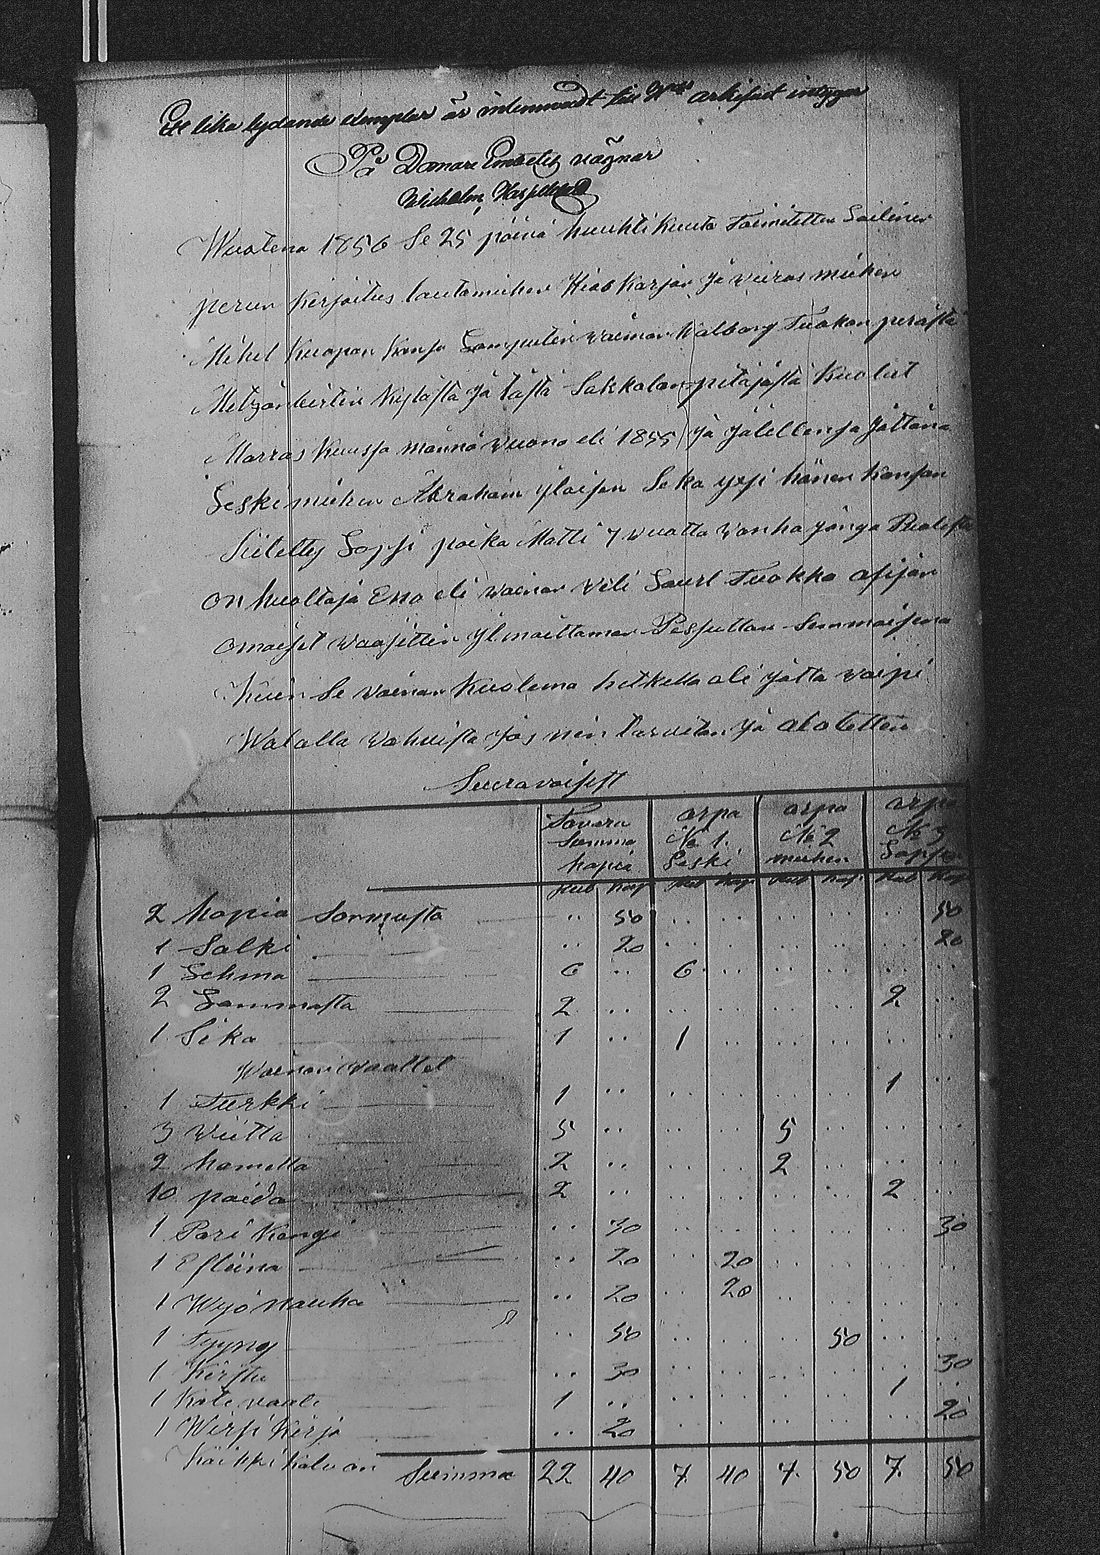 Ett lika lydande exemplar är inlemnadt till arkifvet intygar
På Domare Embetets vägnar
Wilhelm
Wuotena 1856 Se 25 päivä huuhtikuuta Toimitettin Sailinen
perun kirjoitus lautamiehen Heas Karjan ja vieras miehen
Mikel Kuapan kansa Sampulin vaimon Walborg Tuokon perästä
Metzänkirtin Kylästä ja tästä Sakkolan pitäjästä Kuolut
Marras Kuusja männä vuona eli 1855 ja jälellensä jättänä
Leskimiehen Abraham yläisen Seka yxsi hänen kansan
Siitetty Lapsi poika Matti 7 vuotta vanha jonga Puolesta
on huoltaja Eno eli vaimon veli Saul Tuokko asijan
omaiset vaajittin ylmoittaman Pesjuttan Semmoisena
kuin Se vaiman Kuolema hetkella oli jotta voipi
Walalla vahvista jos nin tarvitan ja alotettin
Seuravaisest
Tavara Somma kopia arpa № 1. Leski arpa № 2 miehen arpa № 3 Lapsen
Rub kop Rub kop Rub kop Rub kop
2 kopia Sormusta .. 50 .. .. .. .. .. 50
1 Solki .. 20 .. .. .. .. .. 20
1 Lehma 6 .. 6 .. .. .. .. ..
2 Lammasta 2 .. .. .. .. .. 2 ..
1 Sika 1 .. 1 .. .. .. .. ..
Waimon vaattet
1 Turkki 1 .. .. .. .. .. 1 ..
3 Viitta 5 .. .. .. 5 .. .. ..
2 hametta 2 .. .. .. 2 .. .. ..
10 paida 2 .. .. .. .. .. 2 ..
1 Pari Kengi .. 30 .. .. .. .. .. 30
1 Esliina .. 20 .. 20 .. .. .. ..
1 Wyö nauha .. 20 .. 20 .. .. .. ..
1 Tyyny .. 50 .. .. .. 50 .. ..
1 Kirstu .. 30 .. .. .. .. .. 30
1 Koti vaali 1 .. .. .. .. .. 1 ..
1 Wirsi Kirja .. 20 .. .. .. .. .. 20
Kaikki kalu on Summa 22 40 7 40 7 50 7 50